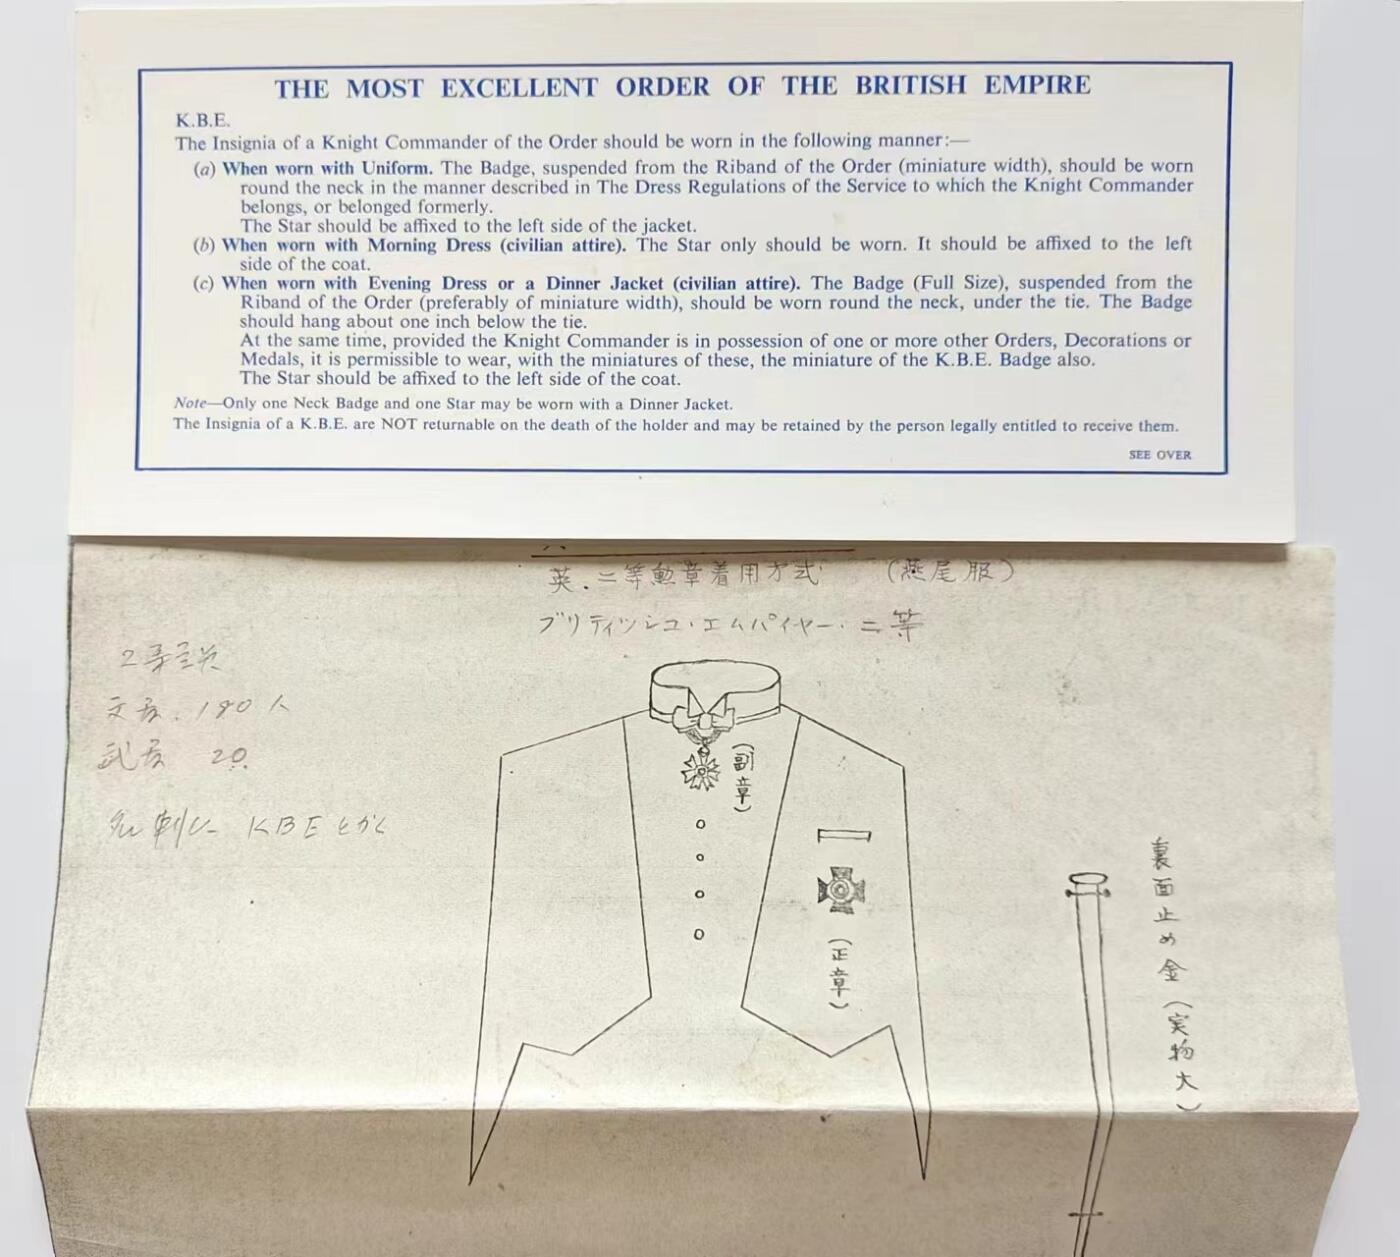 THE MOST EXCELLENT ORDER OF THE BRITISH EMPIRE
K.B.E.
The Insignia of a Knight Commander of the Order should be worn in the following manner:—
(a) When worn with Uniform. The Badge, suspended from the Riband of the Order (miniature width), should be worn
round the neck in the manner described in The Dress Regulations of the Service to which the Knight Commander
belongs, or belonged formerly.
The Star should be affixed to the left side of the jacket.
(b) When worn with Morning Dress (civilian attire). The Star only should be worn. It should be affixed to the left
side of the coat.
(c) When worn with Evening Dress or a Dinner Jacket (civilian attire). The Badge (Full Size), suspended from the
Riband of the Order (preferably of miniature width), should be worn round the neck, under the tie. The Badge
should hang about one inch below the tie.
At the same time, provided the Knight Commander is in possession of one or more other Orders, Decorations or
Medals, it is permissible to wear, with the miniatures of these, the miniature of the K.B.E. Badge also.
The Star should be affixed to the left side of the coat.
Note—Only one Neck Badge and one Star may be worn with a Dinner Jacket.
The Insignia of a K.B.E. are NOT returnable on the death of the holder and may be retained by the person legally entitled to receive them.
SEE OVER
英.二等勲章着用方式 (燕尾服)
ブリティッシュ・エムパイヤー・二等
2等
文官.190人
武官 20
名刺に KBEとかく
(副章)
(正章)
裏面止め金(実物大)